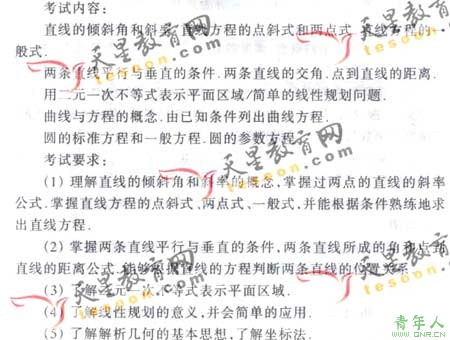 考试内容:
直线的倾斜角和斜率. 直线方程的点斜式和两点式. 直线方程的一
般式.
两条直线平行与垂直的条件. 两条直线的交角. 点到直线的距离.
用二元一次不等式表示平面区域/简单的线性规划问题.
曲线与方程的概念. 由已知条件列出曲线方程.
圆的标准方程和一般方程. 圆的参数方程.
考试要求:
(1) 理解直线的倾斜角和斜率的概念, 掌握过两点的直线的斜率
公式. 掌握直线方程的点斜式、两点式、一般式, 并能根据条件熟练地求
出直线方程.
(2) 掌握两条直线平行与垂直的条件, 两条直线所成的角和点到
直线的距离公式. 能够根据直线的方程判断两条直线的位置关系.
(3) 了解二元一次不等式表示平面区域.
(4) 了解线性规划的意义, 并会简单的应用.
(5) 了解解析几何的基本思想, 了解坐标法.
天星教育网
tesoon.com
天星教育网
tesoon.com
天星教育网
tesoon.com
天星教育网
tesoon.com
天星教育网
tesoon.com
青年人
www.QNR.cn